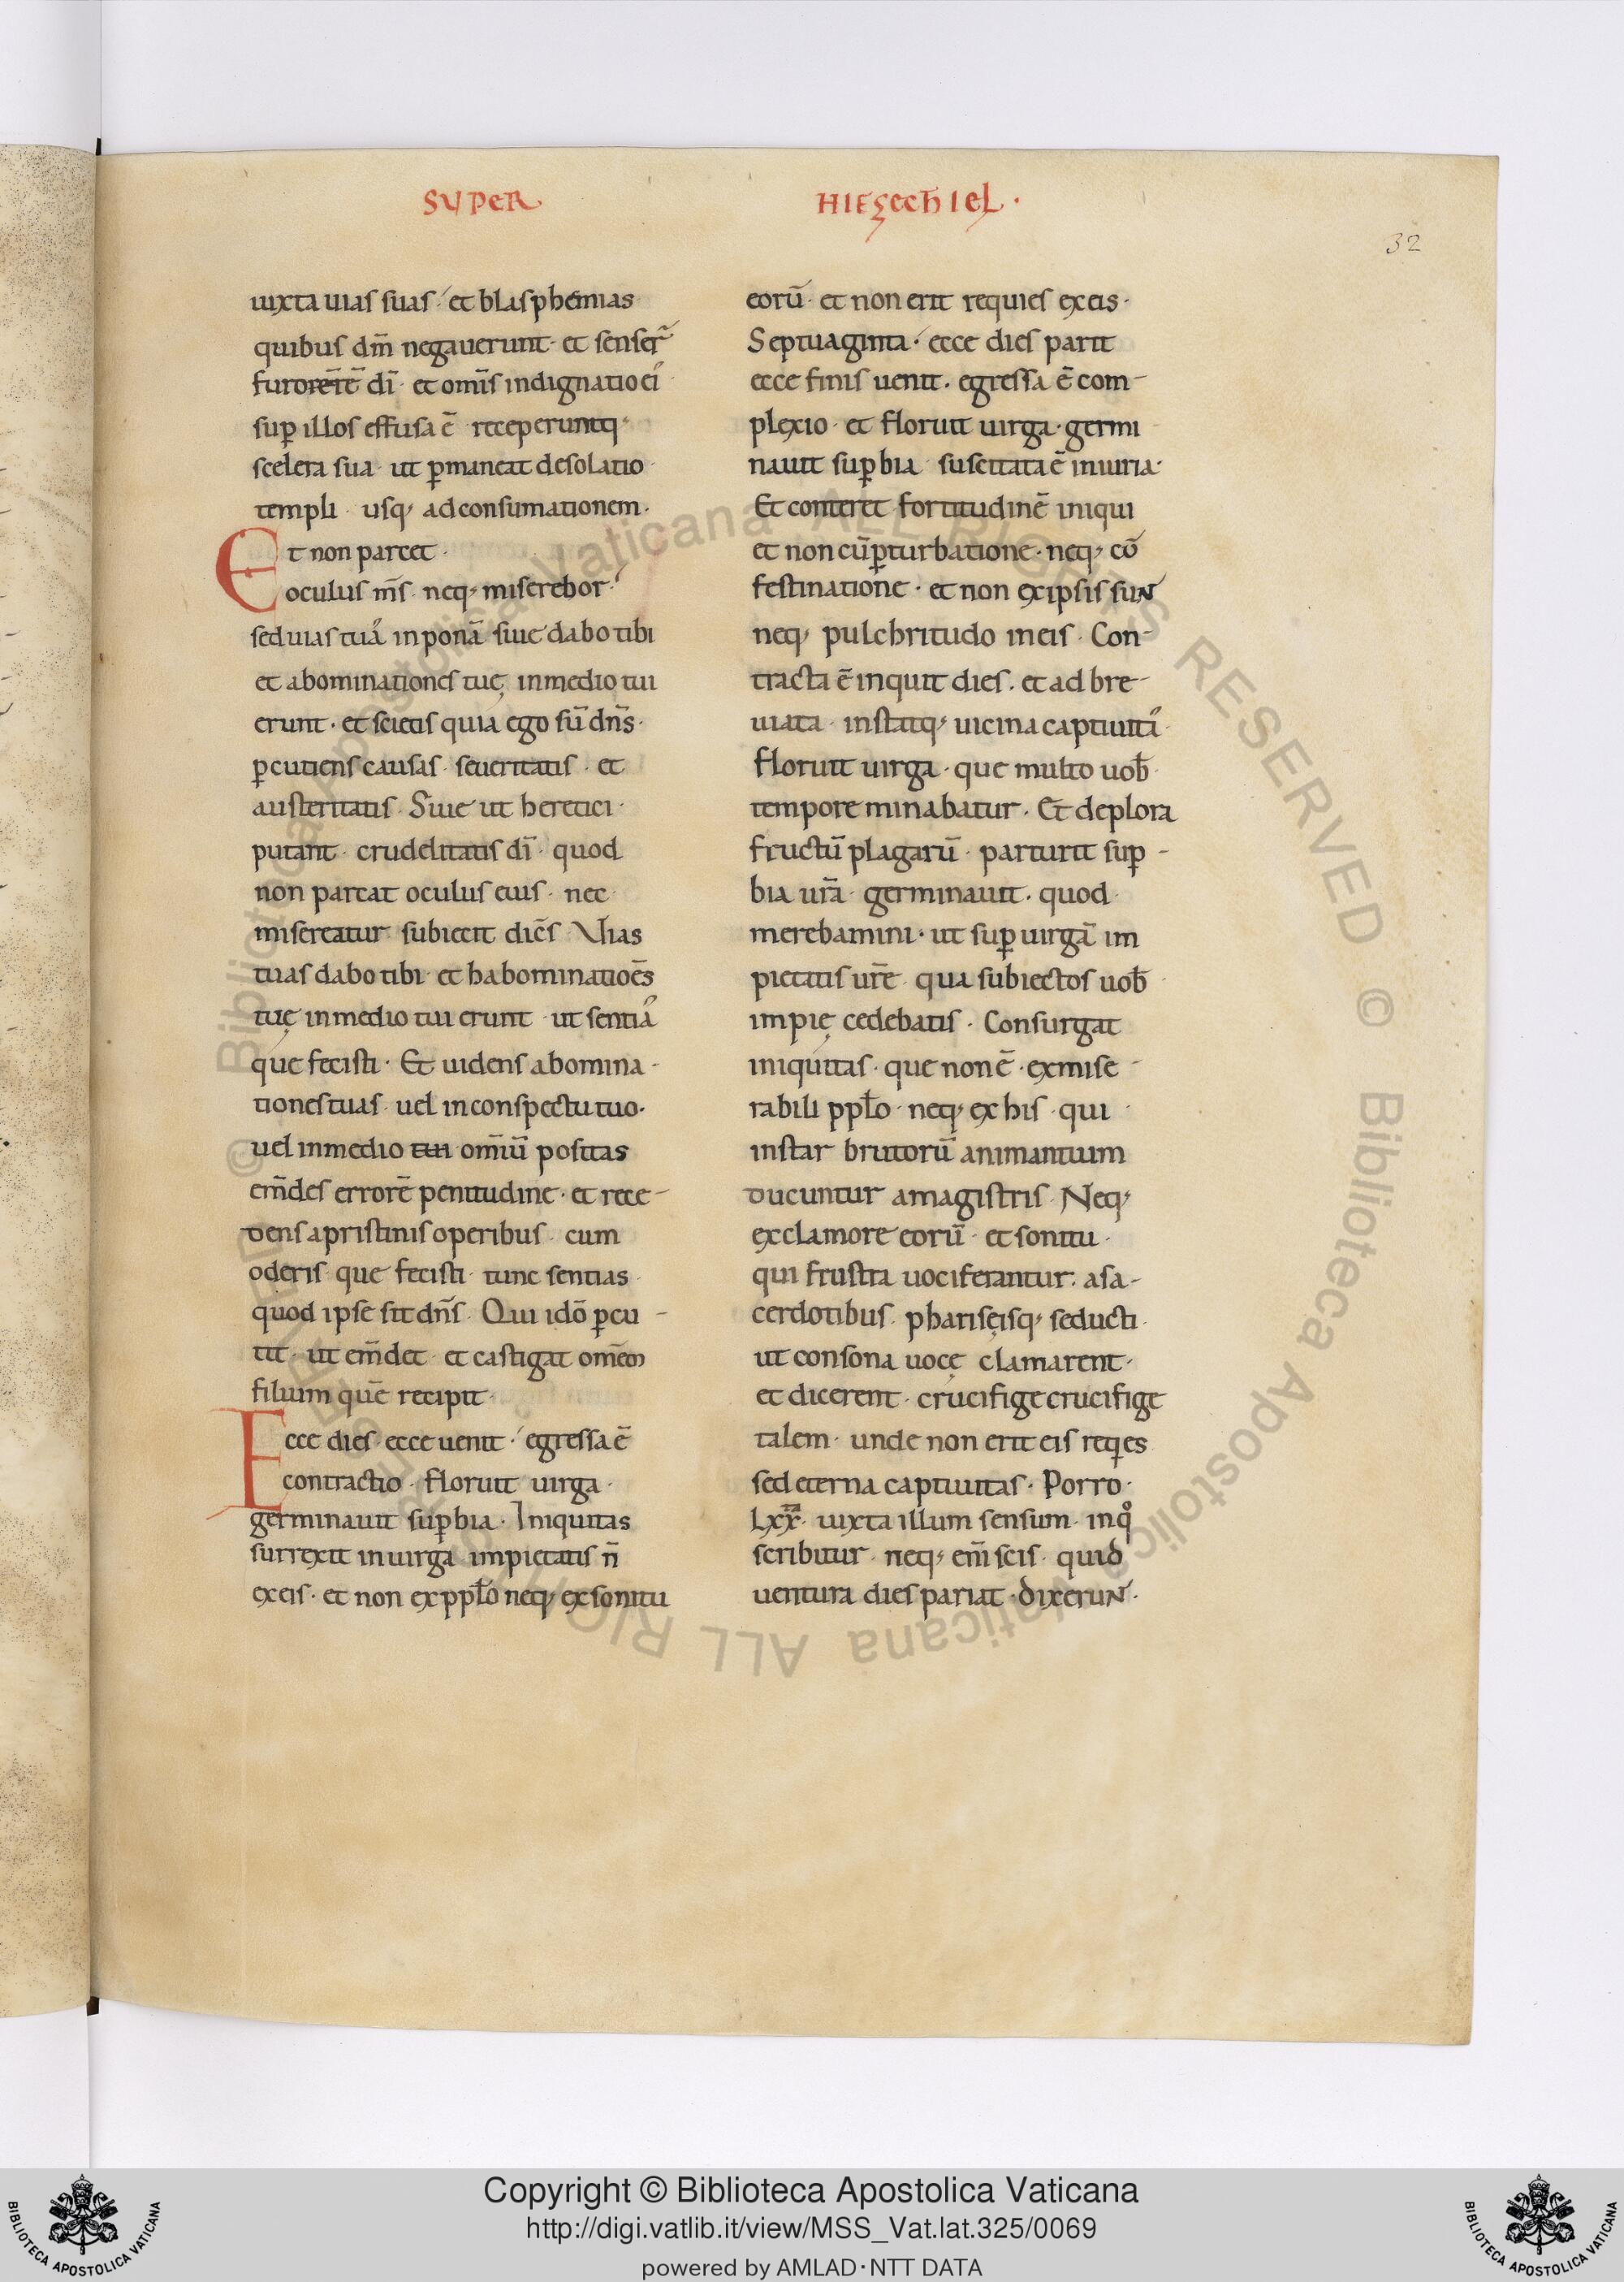 SUPER
HIEZECHIEL·
32
iuxta uias suas· et blasphemias
quibus dm̄ negauerunt· et senser̄
furorē dī· et omīs indignatio ei᾽
sup̱ illos effusa ē receperuntq·
scelera sua· ut p̱maneat desolatio·
templi· usq; ad consumationem·
Et non parcet·
oculus m̄s· neq; miserebor·
sed uias tua᾽ inponā siue dabo tibi
et abominationes tuę in medio tui
erunt· et scietis quia ego sū dn̄s·
p̱cutiens causas· seueritatis· et
austeritatis· Siue ut heretici·
putant· crudelitatis dī· quod
non parcat oculus eius· nec
misereatur subiecit dicēs Vias
tuas dabo tibi· et habominatioēs
tuę in medio tui erunt· ut sentia᾽
que fecisti· Et uidens abomina-
tiones tuas· uel in conspectu tuo·
uel in medio tui omīū positas
em̄des errorē penitudine· et rece-
dens a pristinis operibus· cum
oderis que fecisti· tunc sentias
quod ipse sit dn̄s· Qui idō p̱cu-
tit· ut em̄det· et castigat omēm
filium quē recipit·
Ecce dies ecce uenit· egressa ē
contractio· floruit uirga·
germinauit sup̱bia· Iniquitas
surrexit in uirga impietatis n̄
ex eis· et non ex ppło neq; ex sonitu
eorū· et non erit requies ex eis·
Septuaginta· ecce dies parit
ecce finis uenit· egressa ē com-
plexio· et floruit uirga· germi
nauit sup̱bia suscitata ē iniuria·
Et conteret fortitudinē iniqui
et non cū p̱turbatione· neq; cō
festinatione· et non ex ipsis suN
neq; pulchritudo in eis· Con-
tracta ē inquit dies· et ad bre-
uiata· instatq; uicina captiuita᾽
floruit uirga· que multo uob̄
tempore minabatur· Et deplora
fructū plagarū· parturit sup̱-
bia ur̄a· germinauit· quod
merebamini· ut sup̱ uirgā im
pietatis ur̄e qua subiectos uob̄
impię cedebatis· Consurgat
iniquitas· que non ē· ex mise-
rabili ppło· neq; ex his· qui
instar brutorū animantium
ducuntur a magistris· Neq;
ex clamore eorū· et sonitu·
qui frustra uociferantur· a sa-
cerdotibus· phariseisq; seducti·
ut consona uocę clamarent·
et dicerent· crucifige crucifige
talem· unde non erit eis reqes
sed eterna captiuitas· Porro·
lxx· iuxta illum sensum· inqͦ
scribitur· neq; em̄ scis· quid
uentura dies pariat· dixeruN·
Copyright © Biblioteca Apostolica Vaticana
http://digi.vatlib.it/view/MSS_Vat.lat.325/0069
powered by AMLAD·NTT DATA